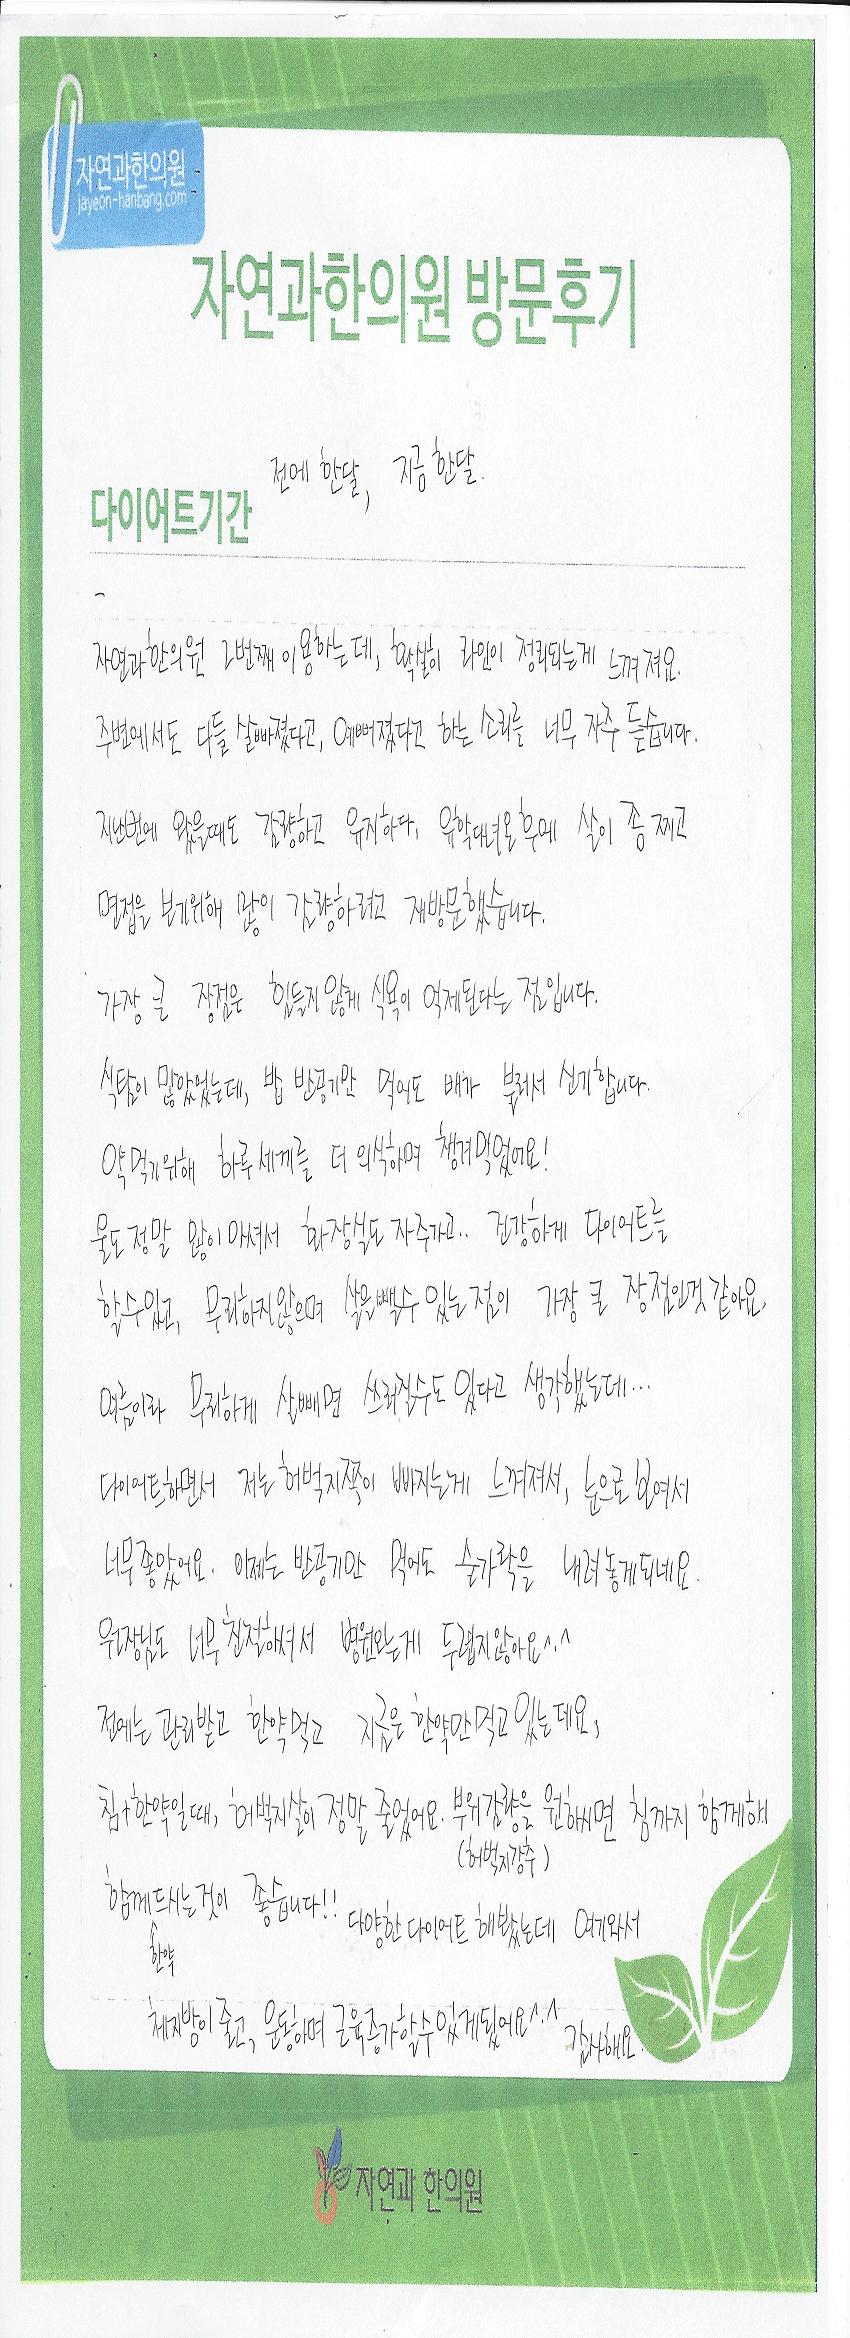 자연과한의원
jayeon-hanbang.com
자연과한의원 방문후기
전에 한달, 지금 한달.
다이어트기간
자연과한의원 2번째 이용하는데, 확실히 라인이 정리되는게 느껴져요.
주변에서도 다들 살빠졌다고, 예뻐졌다고 하는 소리를 너무 자주 듣습니다.
지난번에 왔을때도 감량하고 유지하다, 유학다녀온후에 살이 좀 찌고
면접을 보기위해 많이 감량하려고 재방문했습니다.
가장 큰 장점은 힘들지 않게 식욕이 억제된다는 점입니다.
식탐이 많았었는데, 밥 반공기만 먹어도 배가 불러서 신기합니다.
약먹기위해 하루 세끼를 더 의식하며 챙겨먹었어요!
물도 정말 많이 마셔서 화장실도 자주가고.. 건강하게 다이어트를
할수있고, 무리하지않으며 살을뺄수 있는 점이 가장 큰 장점인것 같아요.
여름이라 무리하게 살빼면 쓰러질수도 있다고 생각했는데...
다이어트하면서 저는 허벅지쪽이 빠지는게 느껴져서, 눈으로 보여서
너무 좋았어요. 이제는 반공기만 먹어도 숟가락을 내려놓게되네요.
원장님도 너무 친절하셔서 병원오는게 두렵지않아요^.^
전에는 관리받고 한약먹고 지금은 한약만먹고 있는데요,
침+한약일때, 허벅지살이 정말 줄었어요. 부위감량을 원하시면 침까지 함께해
(허벅지강추)
함께드시는것이 좋습니다!! 다양한 다이어트 해봤는데 여기와서
한약
체지방이 줄고, 운동하며 근육증가할수있게됬어요^.^ 감사해요.
자연과 한의원